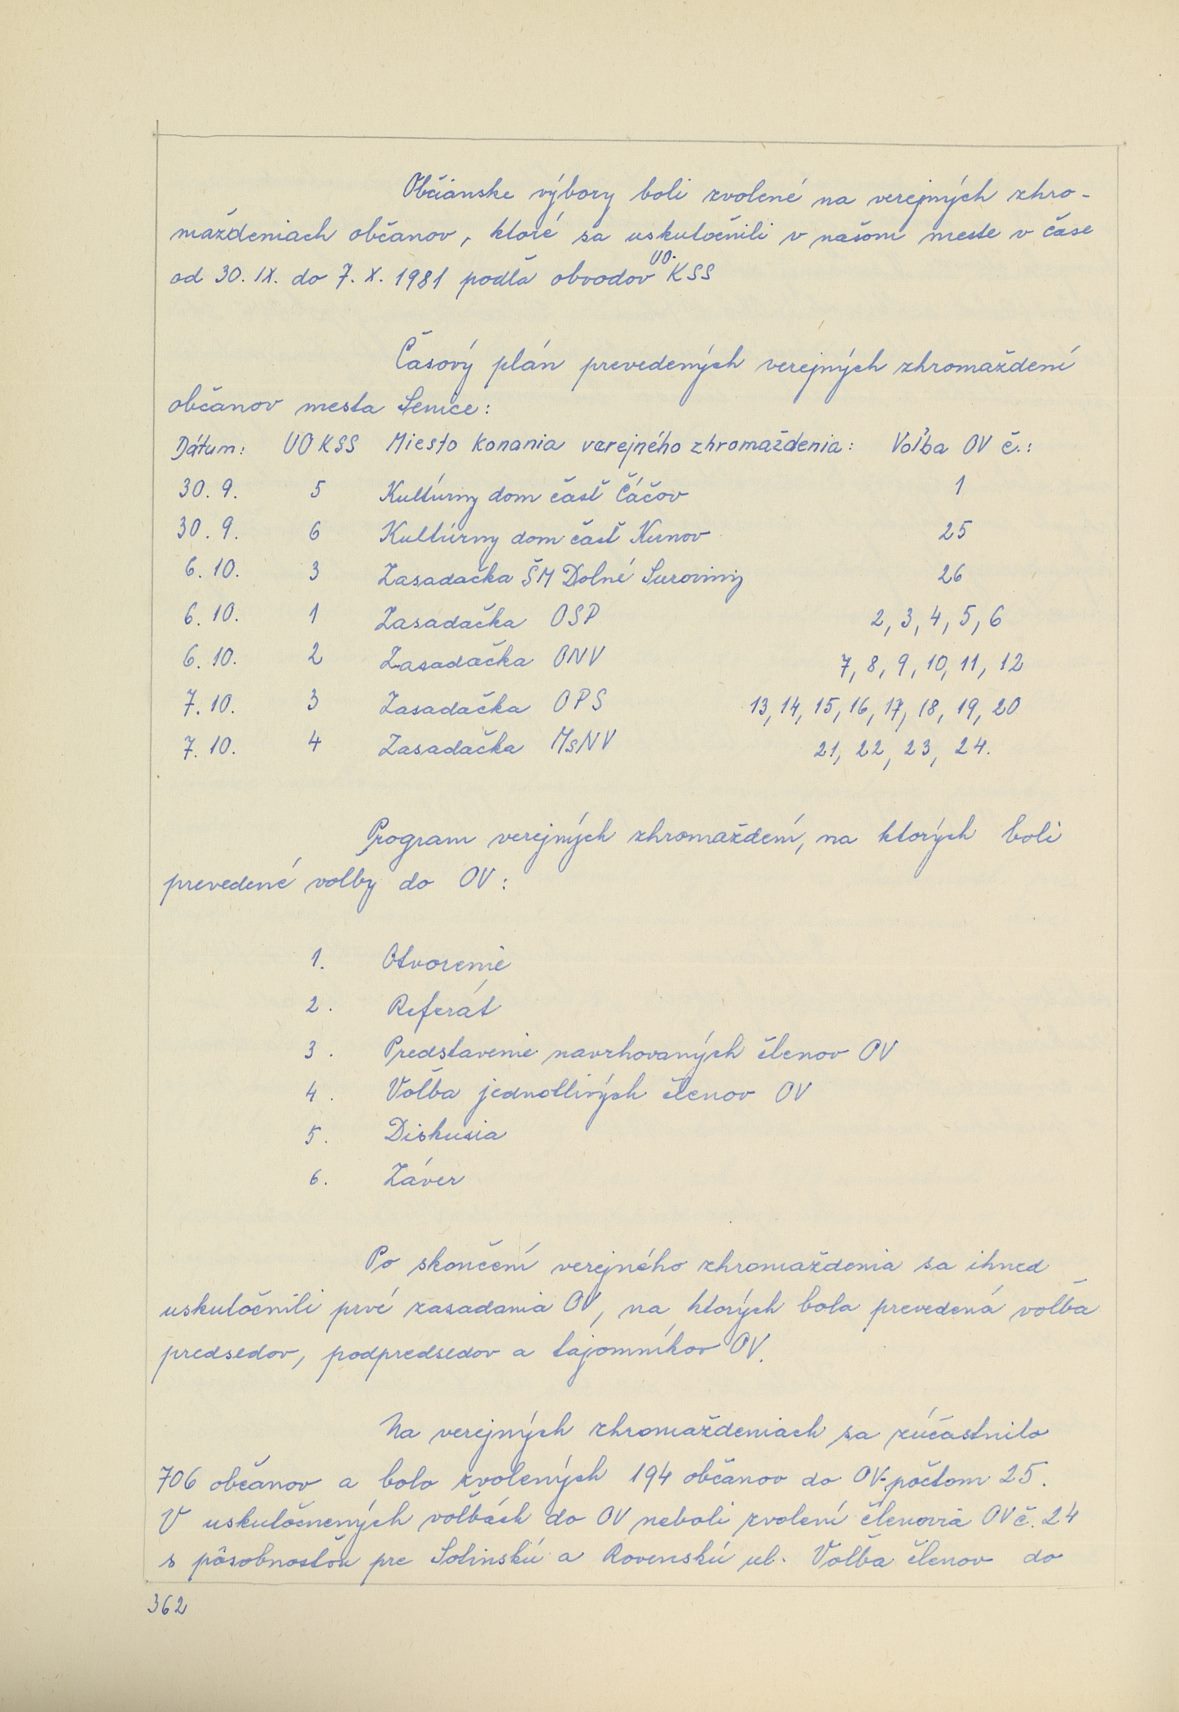 Občianske výbory boli zvolené na verejných zhro-
maždeniach občanov, ktoré sa uskutočnili v našom meste v čase
od 30. IX. do 7. X. 1981 podľa obvodov UO. KSS
Časový plán prevedených verejných zhromaždení
občanov mesta Senice:
Dátum: UO KSS Miesto konania verejného zhromaždenia: Voľba OV č.:
30. 9. 5 Kultúrny dom časť Čáčov 1
30. 9. 6 Kultúrny dom časť Kunov 25
6. 10. 3 Zasadačka ŠM Dolné Suroviny 26
6. 10. 1 Zasadačka OSP 2, 3, 4, 5, 6
6. 10. 2 Zasadačka ONV 7, 8, 9, 10, 11, 12
7. 10. 3 Zasadačka OPS 13, 14, 15, 16, 17, 18, 19, 20
7. 10. 4 Zasadačka MsNV 21, 22, 23, 24.
Program verejných zhromaždení, na ktorých boli
prevedené voľby do OV:
1. Otvorenie
2. Referát
3. Predstavenie navrhovaných členov OV
4. Voľba jednotlivých členov OV
5. Diskusia
6. Záver
Po skončení verejného zhromaždenia sa ihneď
uskutočnili prvé zasadania OV, na ktorých bola prevedená voľba
predsedov, podpredsedov a tajomníkov OV.
Na verejných zhromaždeniach sa zúčastnilo
706 občanov a bolo zvolených 194 občanov do OV-počtom 25.
V uskutočnených voľbách do OV neboli zvolení členovia OV č. 24
s pôsobnosťou pre Sotinskú a Rovenskú ul. Voľba členov do
362